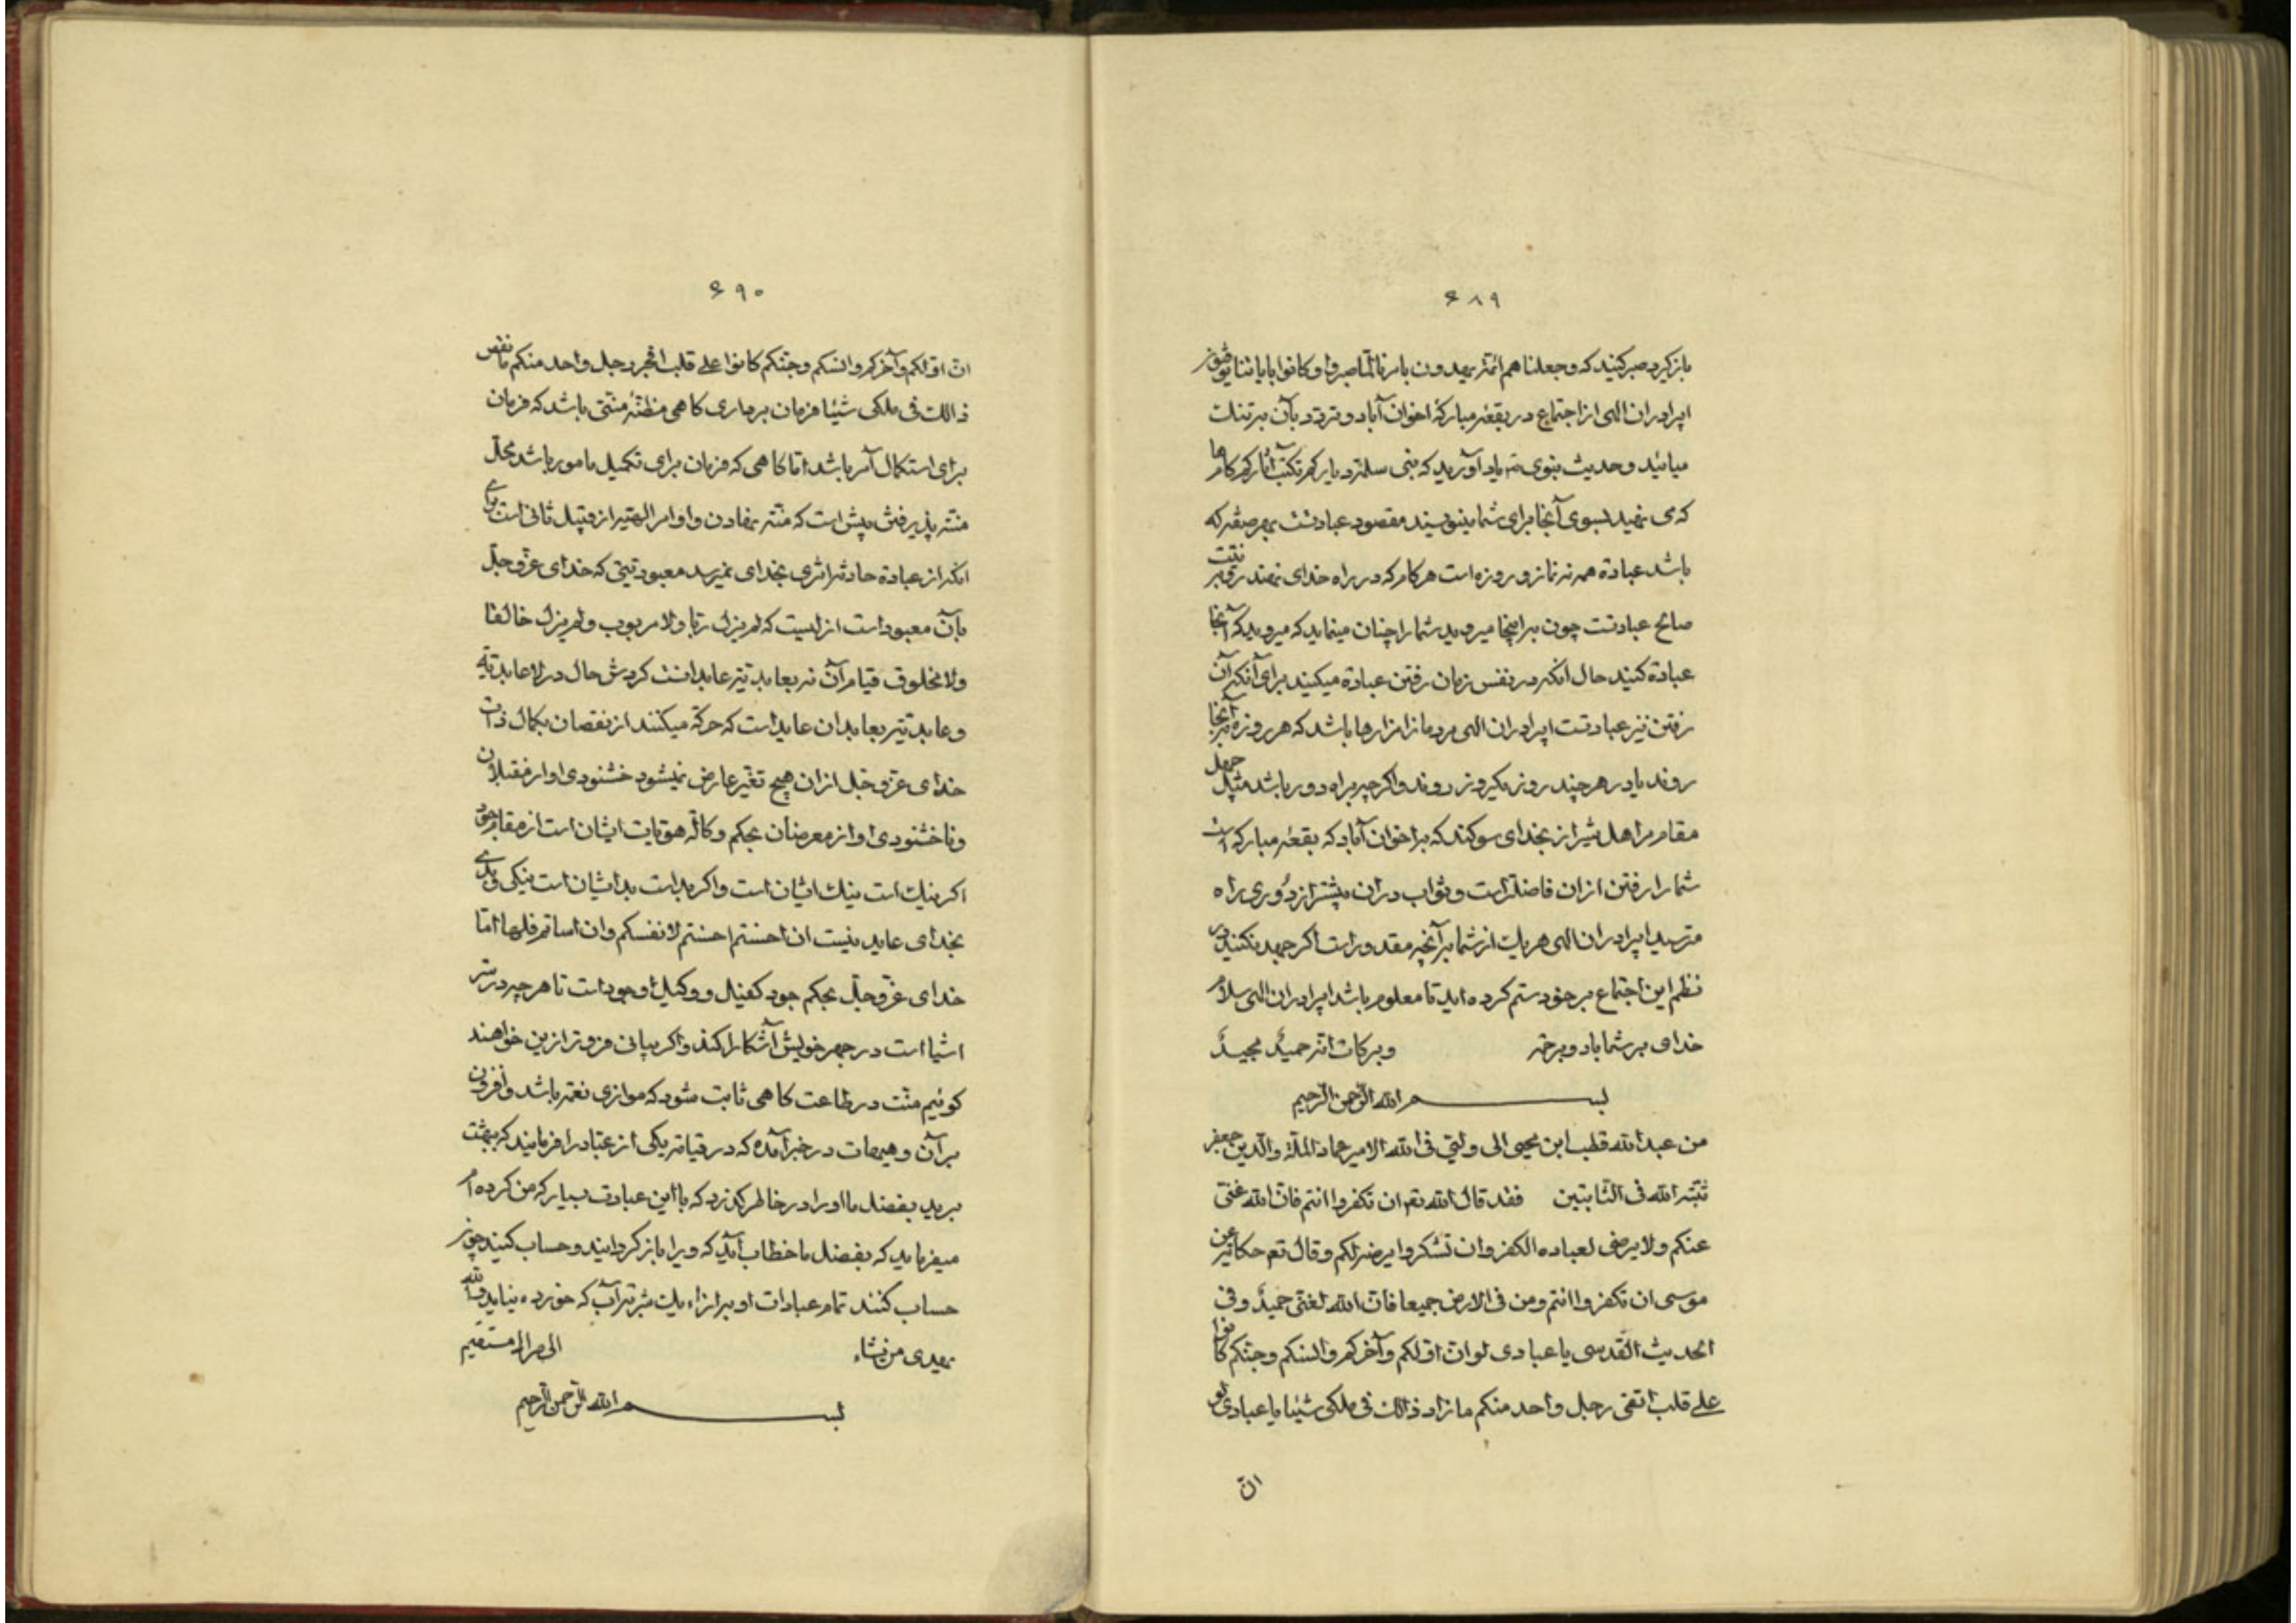 ۶۸۹
باز گیرد صبر کنید که و جعلناهم ائمة یهدون بامرنا لما صبروا و کانوا بایاتنا یوقنون
ای برادران الهی از اجتماع در بقعه مبارکهٔ اخوان آباد و تردد بآن
میائید و حدیث نبوی یاد آورید که بنی سلمة دیارکم تکتب آثارکم کامها
که می نهید بسوی آنجا برای شما مینویسند مقصود عبادتست بهر صفة که
باشد عبادة همه نه نماز و روزه است هر کام که در راه خدای نهند نیت
صالح عبادتست چون براینجا میروید شما را چنان مینماید که میروید که آنجا
عبادة کنید حال انکه در نفس زمان رفتن عبادة میکنید برای آنکه آن
رفتن نیز عبادتست ای برادران الهی مردمانرا مزارها باشد که هر روزه بر آنجا
روند یا در هر چند روز یکروز روند و اگرچه براه دور باشد مثل چهل
مقام مر اهل شیراز بخدای سوکند که براخوان آباد که بقعه مبارکه است
شما را رفتن از ان فاضلتر است و ثواب در ان بیشتر از دوری راه
مترسید ای برادران الهی هر یک از شما برآنچه مقدور است اگر جهد نکنید در
نظم این اجتماع بر خود ستم کرده اید تا معلوم باشد ای برادران الهی سلام
خدای بر شما باد و برحمته و برکات انه حمیدٌ مجیدٌ
بسم الله الرحمن الرحیم
من عبد الله قطب ابن محیی الی ولیی فی الله الامیر عماد الملة والدین جعفر
ثبته الله فی الثابتین فقد قال الله تعم ان تکفروا انتم فان الله غنی
عنکم ولا یرضی لعباده الکفر وان تشکروا یرضه لکم و قال تعم حکایة عن
موسی ان تکفروا انتم ومن فی الارض جمیعا فان الله لغنی حمیدٌ وفی
الحدیث القدسی یا عبادی لو ان اولکم وآخرکم وانسکم وجنکم کانوا
علی قلب اتقی رجل واحد منکم ما زاد ذالک فی ملکی شیئا یا عبادی لو
ان
۶۹۰
ان اولکم وآخرکم وانسکم وجنکم کانوا علی قلب افجر رجل واحد منکم ما نقص
ذالک فی ملکی شیئا فرمان برداری کاهی مظنهٔ منتی باشد که فرمان
برای استکمال آمر باشد اما کاهی که فرمان برای تکمیل مامور باشد محل
منته پذیرفتن پیش است که منته نهادن و اوامر الهیه از قبیل ثانی است برای
انکه از عبادة حادث اثری بخدای نمیرسد معبودیتی که خدای عز و جل
بآن معبود است ازلیست که لم یزل ربا ولا مربوب ولم یزل خالقا
ولا مخلوق قیام آن نه بعابدیته عابدانست کردش حال در لا عابدیة
و عابدیته بعابدان عاید است که حرکة میکنند از نقصان بکمال ذات
خدای عز و جل از ان هیچ تغیر عارض نمیشود خشنودی او از مقبلان
و ناخشنودی او از معرضان بحکم وکالة هویات ایشان است از مقام
اکر نیک است نیک ایشان است و اکر بد است بد ایشان است نیکی و بدی
بخدای عاید نیست ان احسنتم احسنتم لانفسکم وان اساتم فلها اما
خدای عز و جل بحکم جود کفیل و وکیل وجود است تا هر چه در سر
اشیا است در جهر خویش آشکارا کند و اکر بیانی فزوتر ازین خواهند
کوئیم منت در طاعت کاهی ثابت شود که موازی نعمة باشد و افزون
بر آن و هیهات در خبر آمده که در قیامة یکی از عباد را فرمایند که بهشت
برید بفضل ما او را در خاطر کذرد که با این عبادت بسیار که من کرده ام
میفرماید که بفضل ما خطاب آید که ویرا باز کردانید و حساب کنید چون
حساب کنند تمام عبادات او بر ازاء یک شربة آب که خورده نیاید والله
یهدی من یشاء الی صراط مستقیم
بسم الله الرحمن الرحیم